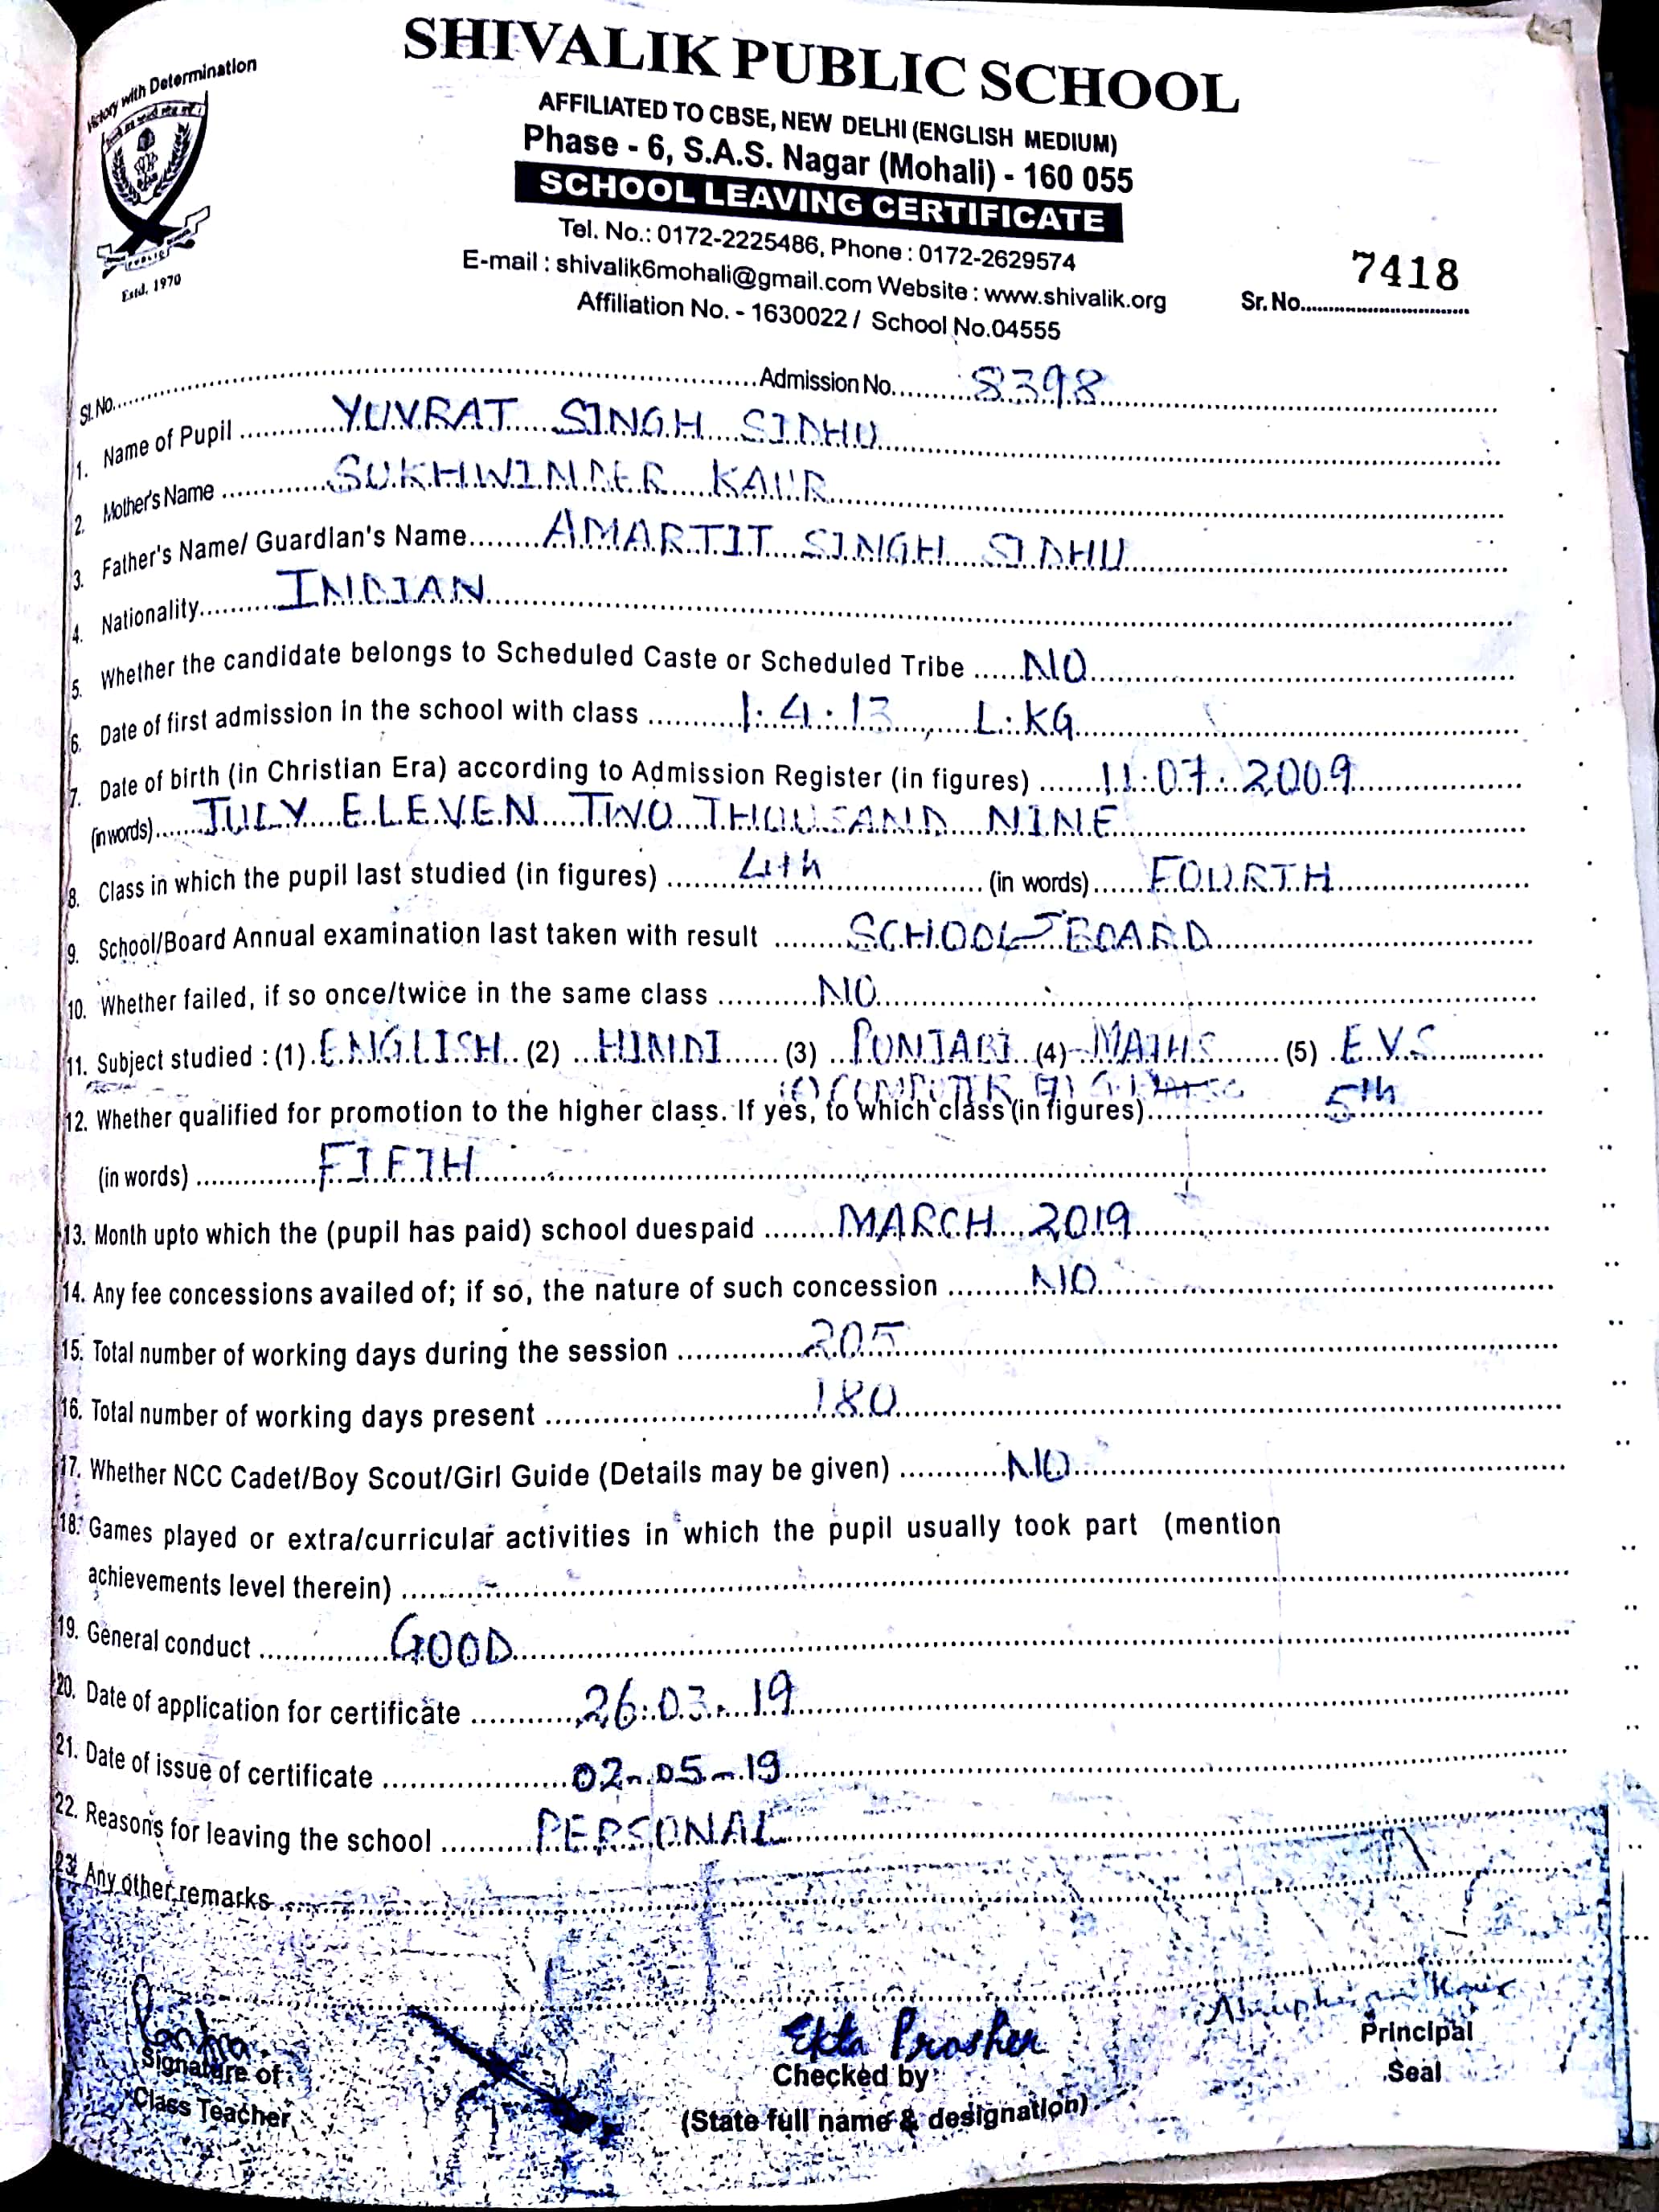 Victory with Determination
SHIVALIK PUBLIC SCHOOL
AFFILIATED TO CBSE, NEW DELHI (ENGLISH MEDIUM)
Phase - 6, S.A.S. Nagar (Mohali) - 160 055
SCHOOL LEAVING CERTIFICATE
Tel. No.: 0172-2225486, Phone : 0172-2629574
E-mail : shivalik6mohali@gmail.com Website : www.shivalik.org
Affiliation No. - 1630022 / School No.04555
PUBLIC
Estd. 1970
7418
Sr. No.
Sl. No. Admission No. 8398
1. Name of Pupil YUVRAJ SINGH SIDHU
2. Mother's Name SUKHWINDER KAUR
3. Father's Name/ Guardian's Name AMARJIT SINGH SIDHU
4. Nationality INDIAN
5. Whether the candidate belongs to Scheduled Caste or Scheduled Tribe NO
6. Date of first admission in the school with class 1.4.13, L.KG
7. Date of birth (in Christian Era) according to Admission Register (in figures) 11.07.2009
(in words) JULY ELEVEN TWO THOUSAND NINE
8. Class in which the pupil last studied (in figures) 4th (in words) FOURTH
9. School/Board Annual examination last taken with result SCHOOL BOARD
10. Whether failed, if so once/twice in the same class NO
11. Subject studied : (1) ENGLISH (2) HINDI (3) PUNJABI (4) MATHS (5) E.V.S
6) COMPUTER 7)
12. Whether qualified for promotion to the higher class. If yes, to which class (in figures) 5th
(in words) FIFTH
13. Month upto which the (pupil has paid) school duespaid MARCH 2019
14. Any fee concessions availed of; if so, the nature of such concession NO
15. Total number of working days during the session 205
16. Total number of working days present 180
17. Whether NCC Cadet/Boy Scout/Girl Guide (Details may be given) NO
18. Games played or extra/curricular activities in which the pupil usually took part (mention
achievements level therein) -
19. General conduct GOOD
20. Date of application for certificate 26.03.19
21. Date of issue of certificate 02-05-19
22. Reasons for leaving the school PERSONAL
23. Any other remarks
Signature of
Class Teacher
Ekta Prasher
Checked by
(State full name & designation)
Kaur
Principal
Seal